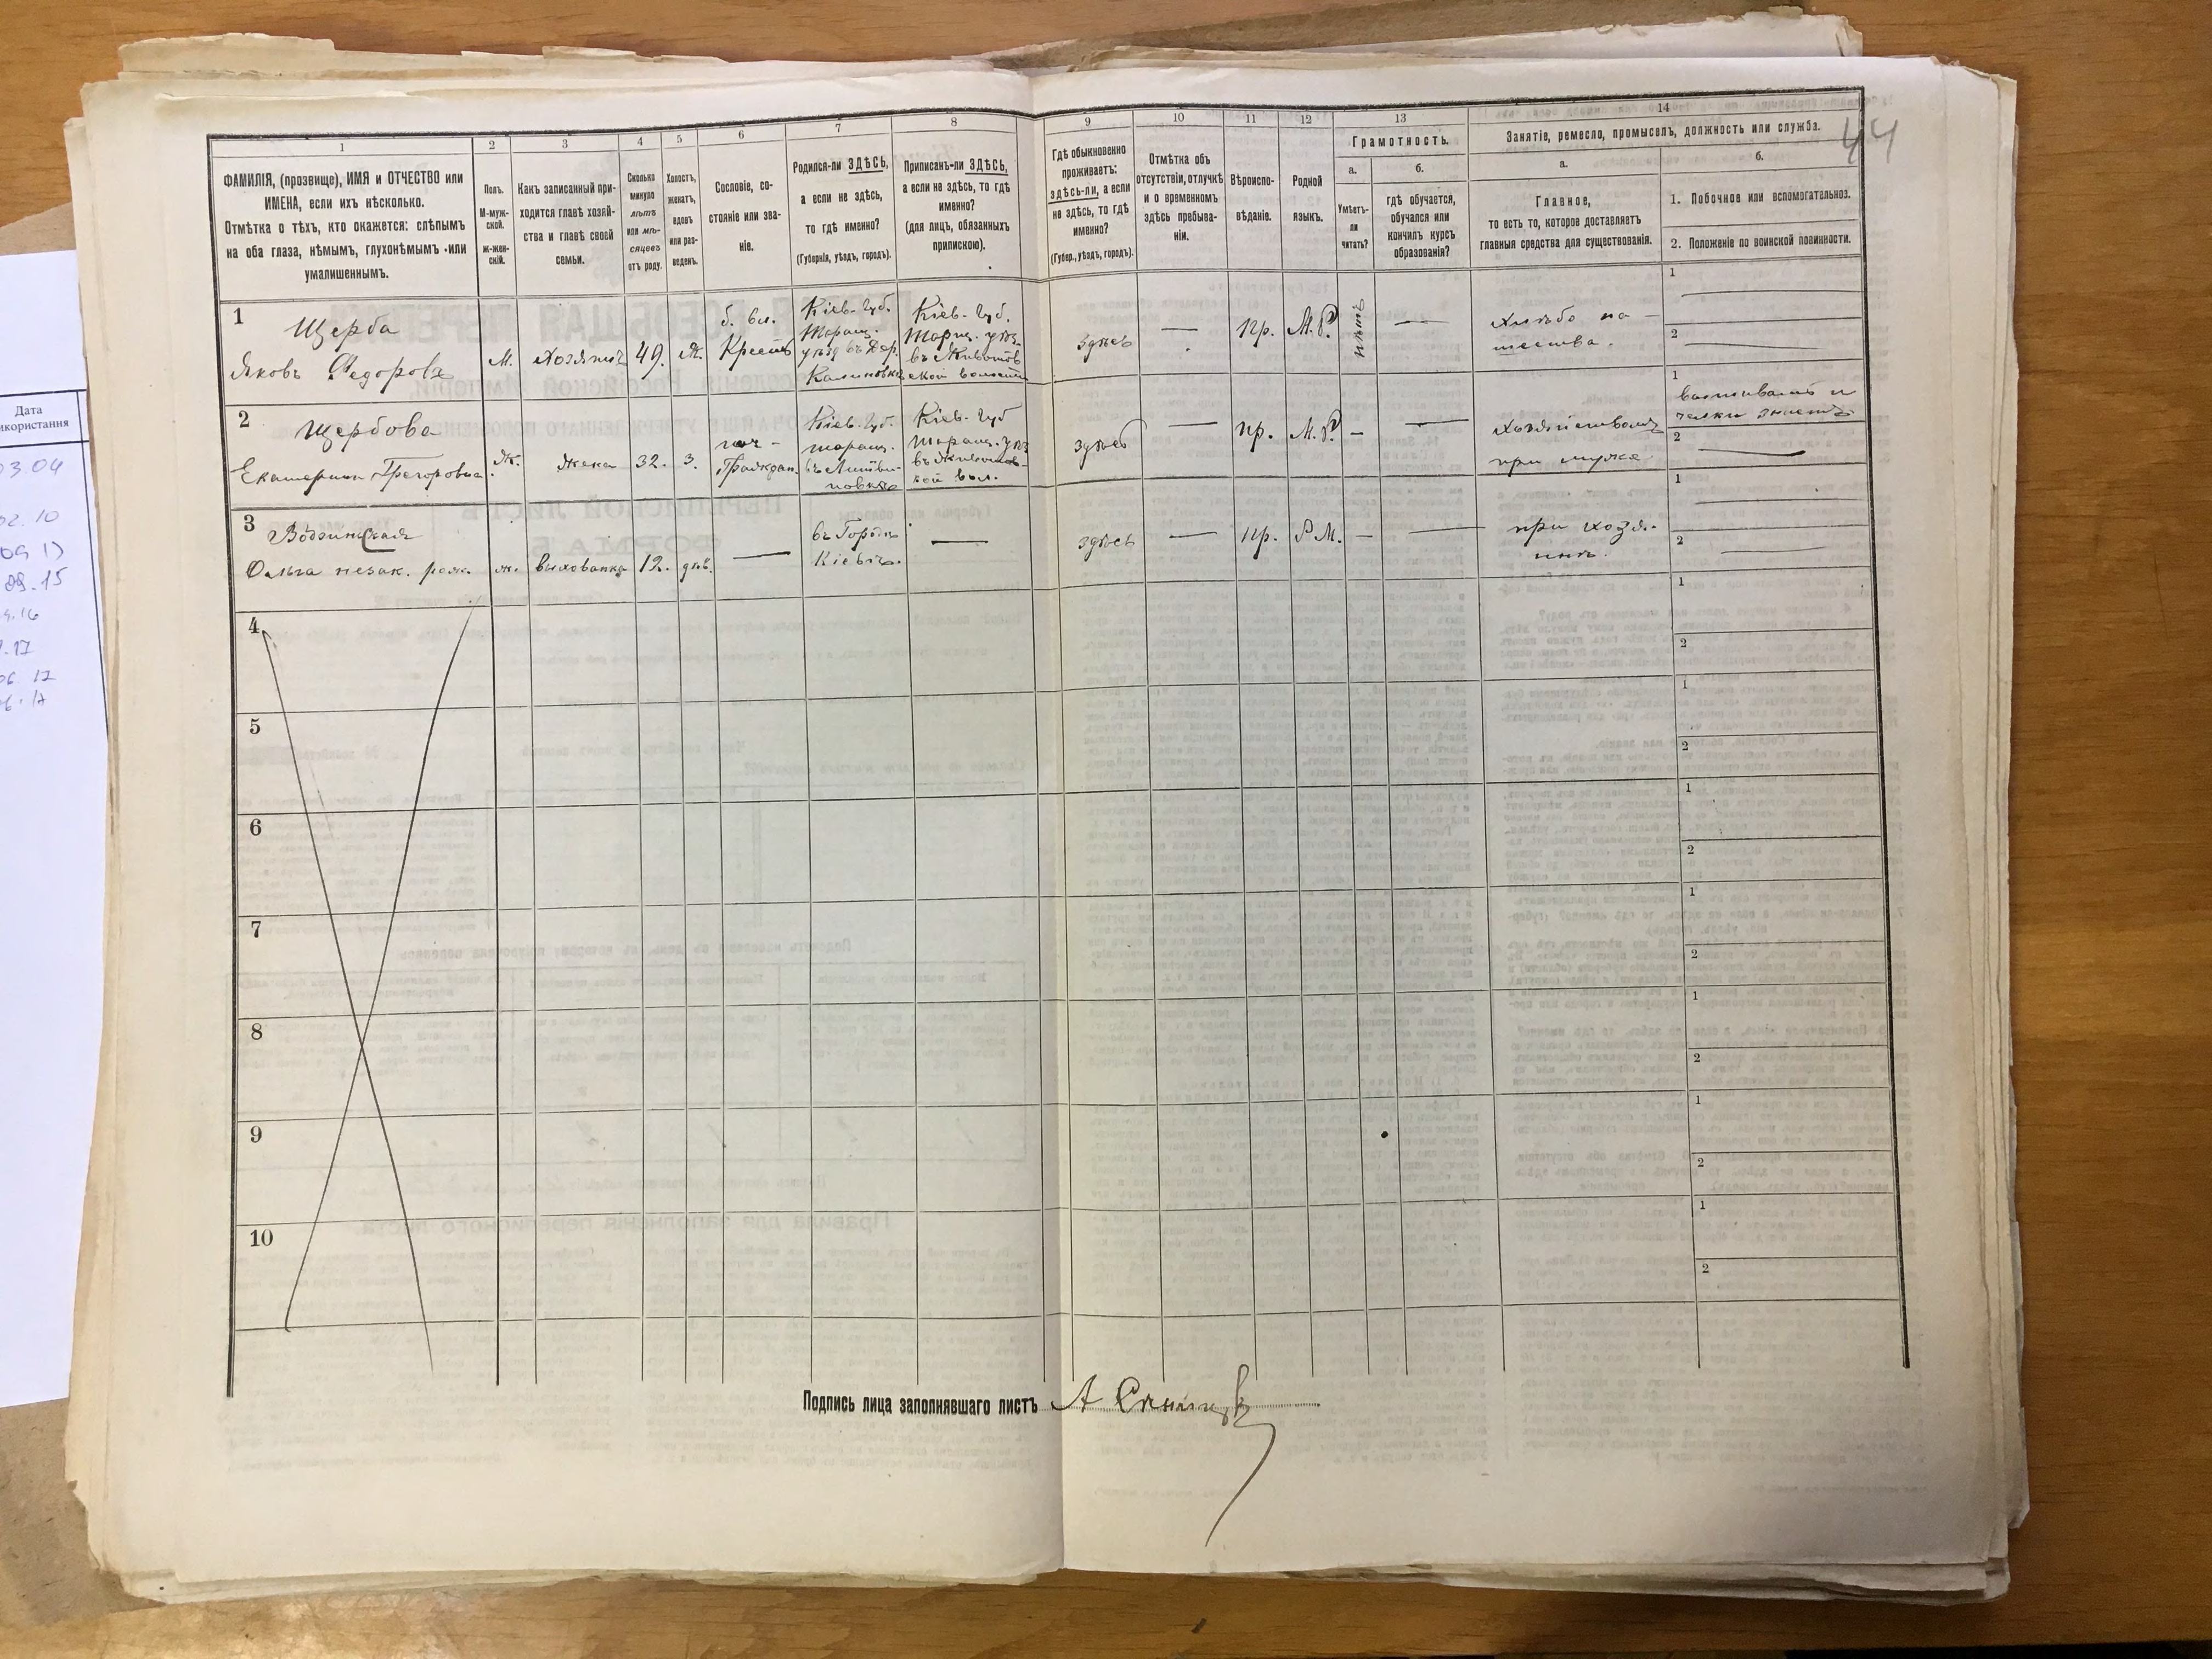 1
2
3
4
5
6
7
8
9
10
11
12
13
14
44
ФАМИЛІЯ, (прозвище), ИМЯ и ОТЧЕСТВО или
ИМЕНА, если ихъ нѣсколько.
Отмѣтка о тѣхъ, кто окажется: слѣпымъ
на оба глаза, нѣмымъ, глухонѣмымъ или
умалишеннымъ.
Полъ.
М-муж-
ской.
ж-жен-
скій.
Какъ записанный при-
ходится главѣ хозяй-
ства и главѣ своей
семьи.
Сколько
минуло
лѣтъ
или мѣ-
сяцевъ
отъ роду.
Холостъ,
женатъ,
вдовъ
или раз-
веденъ.
Сословіе, со-
стояніе или зва-
ніе.
Родился-ли ЗДѢСЬ,
а если не здѣсь,
то гдѣ именно?
(Губернія, уѣздъ, городъ).
Приписанъ-ли ЗДѢСЬ,
а если не здѣсь, то гдѣ
именно?
(для лицъ, обязанныхъ
припискою).
Гдѣ обыкновенно
проживаетъ:
здѣсь-ли, а если
не здѣсь, то гдѣ
именно?
(Губер., уѣздъ, городъ).
Отмѣтка объ
отсутствіи, отлучкѣ
и о временномъ
здѣсь пребыва-
ніи.
Вѣроиспо-
вѣданіе.
Родной
языкъ.
Грамотность.
а.
Умѣетъ-
ли
читать?
б.
гдѣ обучается,
обучался или
кончилъ курсъ
образованія?
Занятіе, ремесло, промыселъ, должность или служба.
а.
Главное,
то есть то, которое доставляетъ
главныя средства для существованія.
б.
1. Побочное или вспомогательное.
2. Положеніе по воинской повинности.
1
Щерба
Яковъ Федоровъ
М.
Хозяинъ
49.
Ж.
б. вл.
Крест
Кіев. Губ.
Таращ.
уѣзд въ Дер.
Калиновкѣ
Кіев. Губ.
Таращ. уѣз.
въ Животов
ской волости
здѣсь
—
Пр.
М. Р.
нѣтъ
—
Хлѣбо па -
шества.
1
2
2
Щербова
Екатерина Григоровна
Ж.
Жена
32.
З.
Граждан.
Кіев. Губ.
таращ.
новкѣ
Кіев. Губ
Таращ. уѣз
въ Животов-
кой вол.
здѣсь
—
пр.
М. Р.
—
—
при мужѣ
1
2
3
Ольга незак. рожд.
ж.
выхованка
12.
дѣв.
—
въ Городѣ
Кіевѣ.
—
здѣсь
—
Пр.
Р М.
—
—
при хозя-
инѣ.
1
2
4
1
2
5
1
2
6
1
2
7
1
2
8
1
2
9
1
2
10
1
2
Подпись лица заполнявшаго листъ
Дата
икористання
03 04
02. 10
09. 15
06. 17